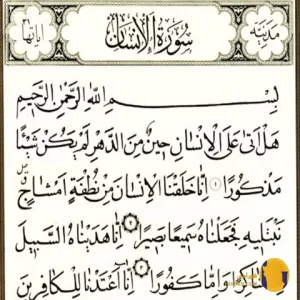 مدنية سورة الإنسان آياتها ٣١
بِسْمِ اللَّهِ الرَّحْمَٰنِ الرَّحِيمِ
هَلْ أَتَىٰ عَلَى الْإِنْسَانِ حِينٌ مِنَ الدَّهْرِ لَمْ يَكُنْ شَيْئًا
مَذْكُورًا ١ إِنَّا خَلَقْنَا الْإِنْسَانَ مِنْ نُطْفَةٍ أَمْشَاجٍ
نَبْتَلِيهِ فَجَعَلْنَاهُ سَمِيعًا بَصِيرًا ٢ إِنَّا هَدَيْنَاهُ السَّبِيلَ
إِمَّا شَاكِرًا وَإِمَّا كَفُورًا ٣ إِنَّا أَعْتَدْنَا لِلْكَافِرِينَ